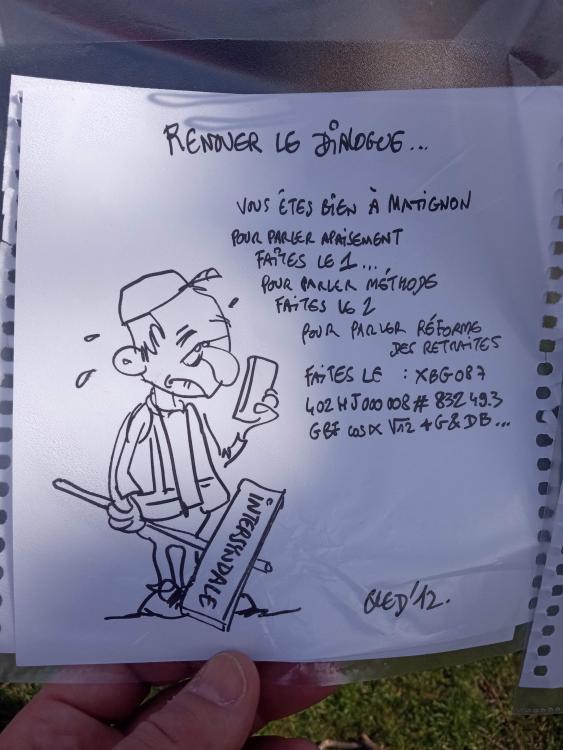 RENOUER LE DIALOGUE...
VOUS ÊTES BIEN À MATIGNON
POUR PARLER APAISEMENT
FAÎTES LE 1...
POUR PARLER MÉTHODE
FAÎTES LE 2
POUR PARLER RÉFORME
DES RETRAITES
FAÎTES LE : XBG087
402HJ000008# 83249.3
GBF cos∝ √12 +G&DB...
INTERSYNDALE
GLED'12.